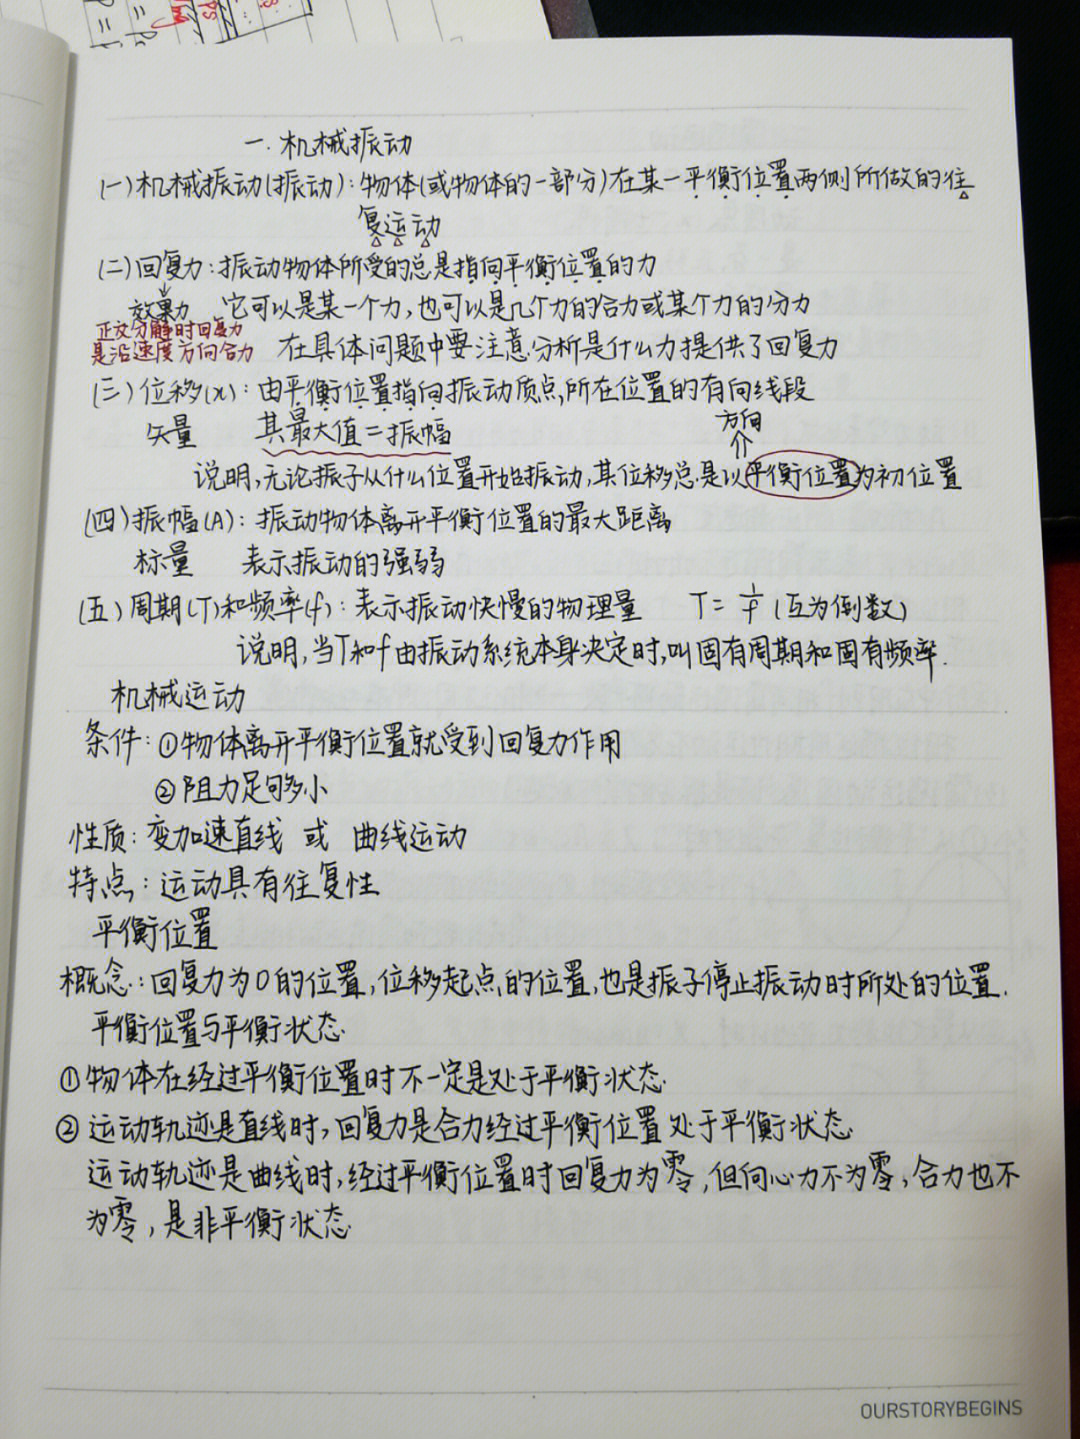 一.机械振动
(一)机械振动(振动):物体(或物体的一部分)在某一平衡位置两侧所做的往
复运动
(二)回复力:振动物体所受的总是指向平衡位置的力
效果力 它可以是某一个力,也可以是几个力的合力或某个力的分力
正交分解时回复力
是沿速度方向合力 在具体问题中要注意分析是什么力提供了回复力
(三)位移(x):由平衡位置指向振动质点所在位置的有向线段
矢量 其最大值=振幅 方向
说明,无论振子从什么位置开始振动,其位移总是以平衡位置为初位置
(四)振幅(A):振动物体离开平衡位置的最大距离
标量 表示振动的强弱
(五)周期(T)和频率(f):表示振动快慢的物理量 T=1/f(互为倒数)
说明,当T和f由振动系统本身决定时,叫固有周期和固有频率.
机械运动
条件:①物体离开平衡位置就受到回复力作用
②阻力足够小
性质:变加速直线 或 曲线运动
特点:运动具有往复性
平衡位置
概念:回复力为0的位置,位移起点的位置,也是振子停止振动时所处的位置.
平衡位置与平衡状态.
①物体在经过平衡位置时不一定是处于平衡状态.
②运动轨迹是直线时,回复力是合力经过平衡位置处于平衡状态.
运动轨迹是曲线时,经过平衡位置时回复力为零,但向心力不为零,合力也不
为零,是非平衡状态.
OURSTORYBEGINS